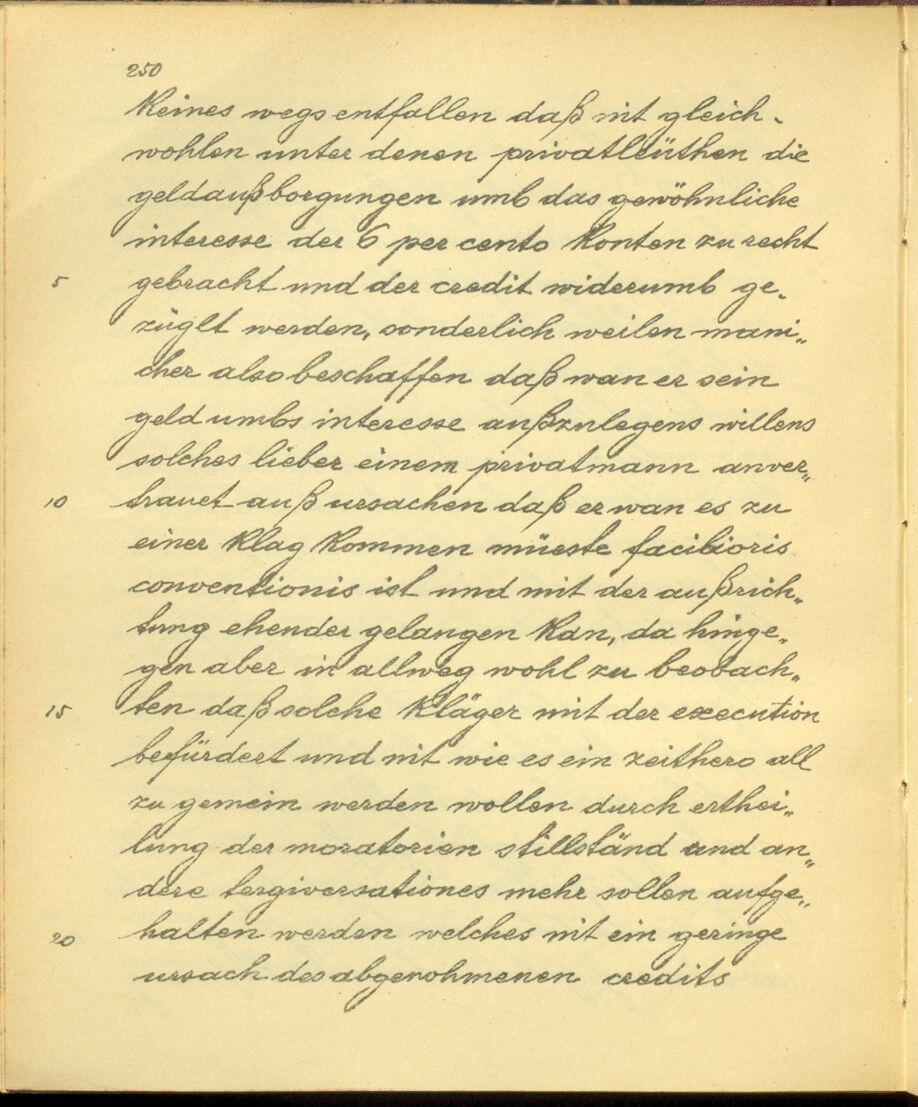 250
keines wegs entfallen daß nit gleich-
wohlen unter denen privatleüthen die
geldaußborgungen umb das gewöhnliche
interesse der 6 per cento konten zu recht
5 gebracht und der credit widerumb ge-
züglt werden, sonderlich weilen mani-
cher also beschaffen daß wan er sein
geld umbs interesse außzulegens willens
solches lieber einem privatmann anver-
10 trauet auß ursachen daß er wan es zu
einer klag kommen müeste facilioris
conventionis ist und mit der außrich-
tung ehender gelangen kan, da hinge-
gen aber in allweg wohl zu beobach-
15 ten daß solche kläger mit der execution
befürdert und nit wie es ein zeithero all
zu gemein werden wollen durch erthei-
lung der moratorien stillständ und an-
dere tergiversationes mehr sollen aufge-
20 halten werden welches nit ein geringe
ursach des abgenohmenen credits